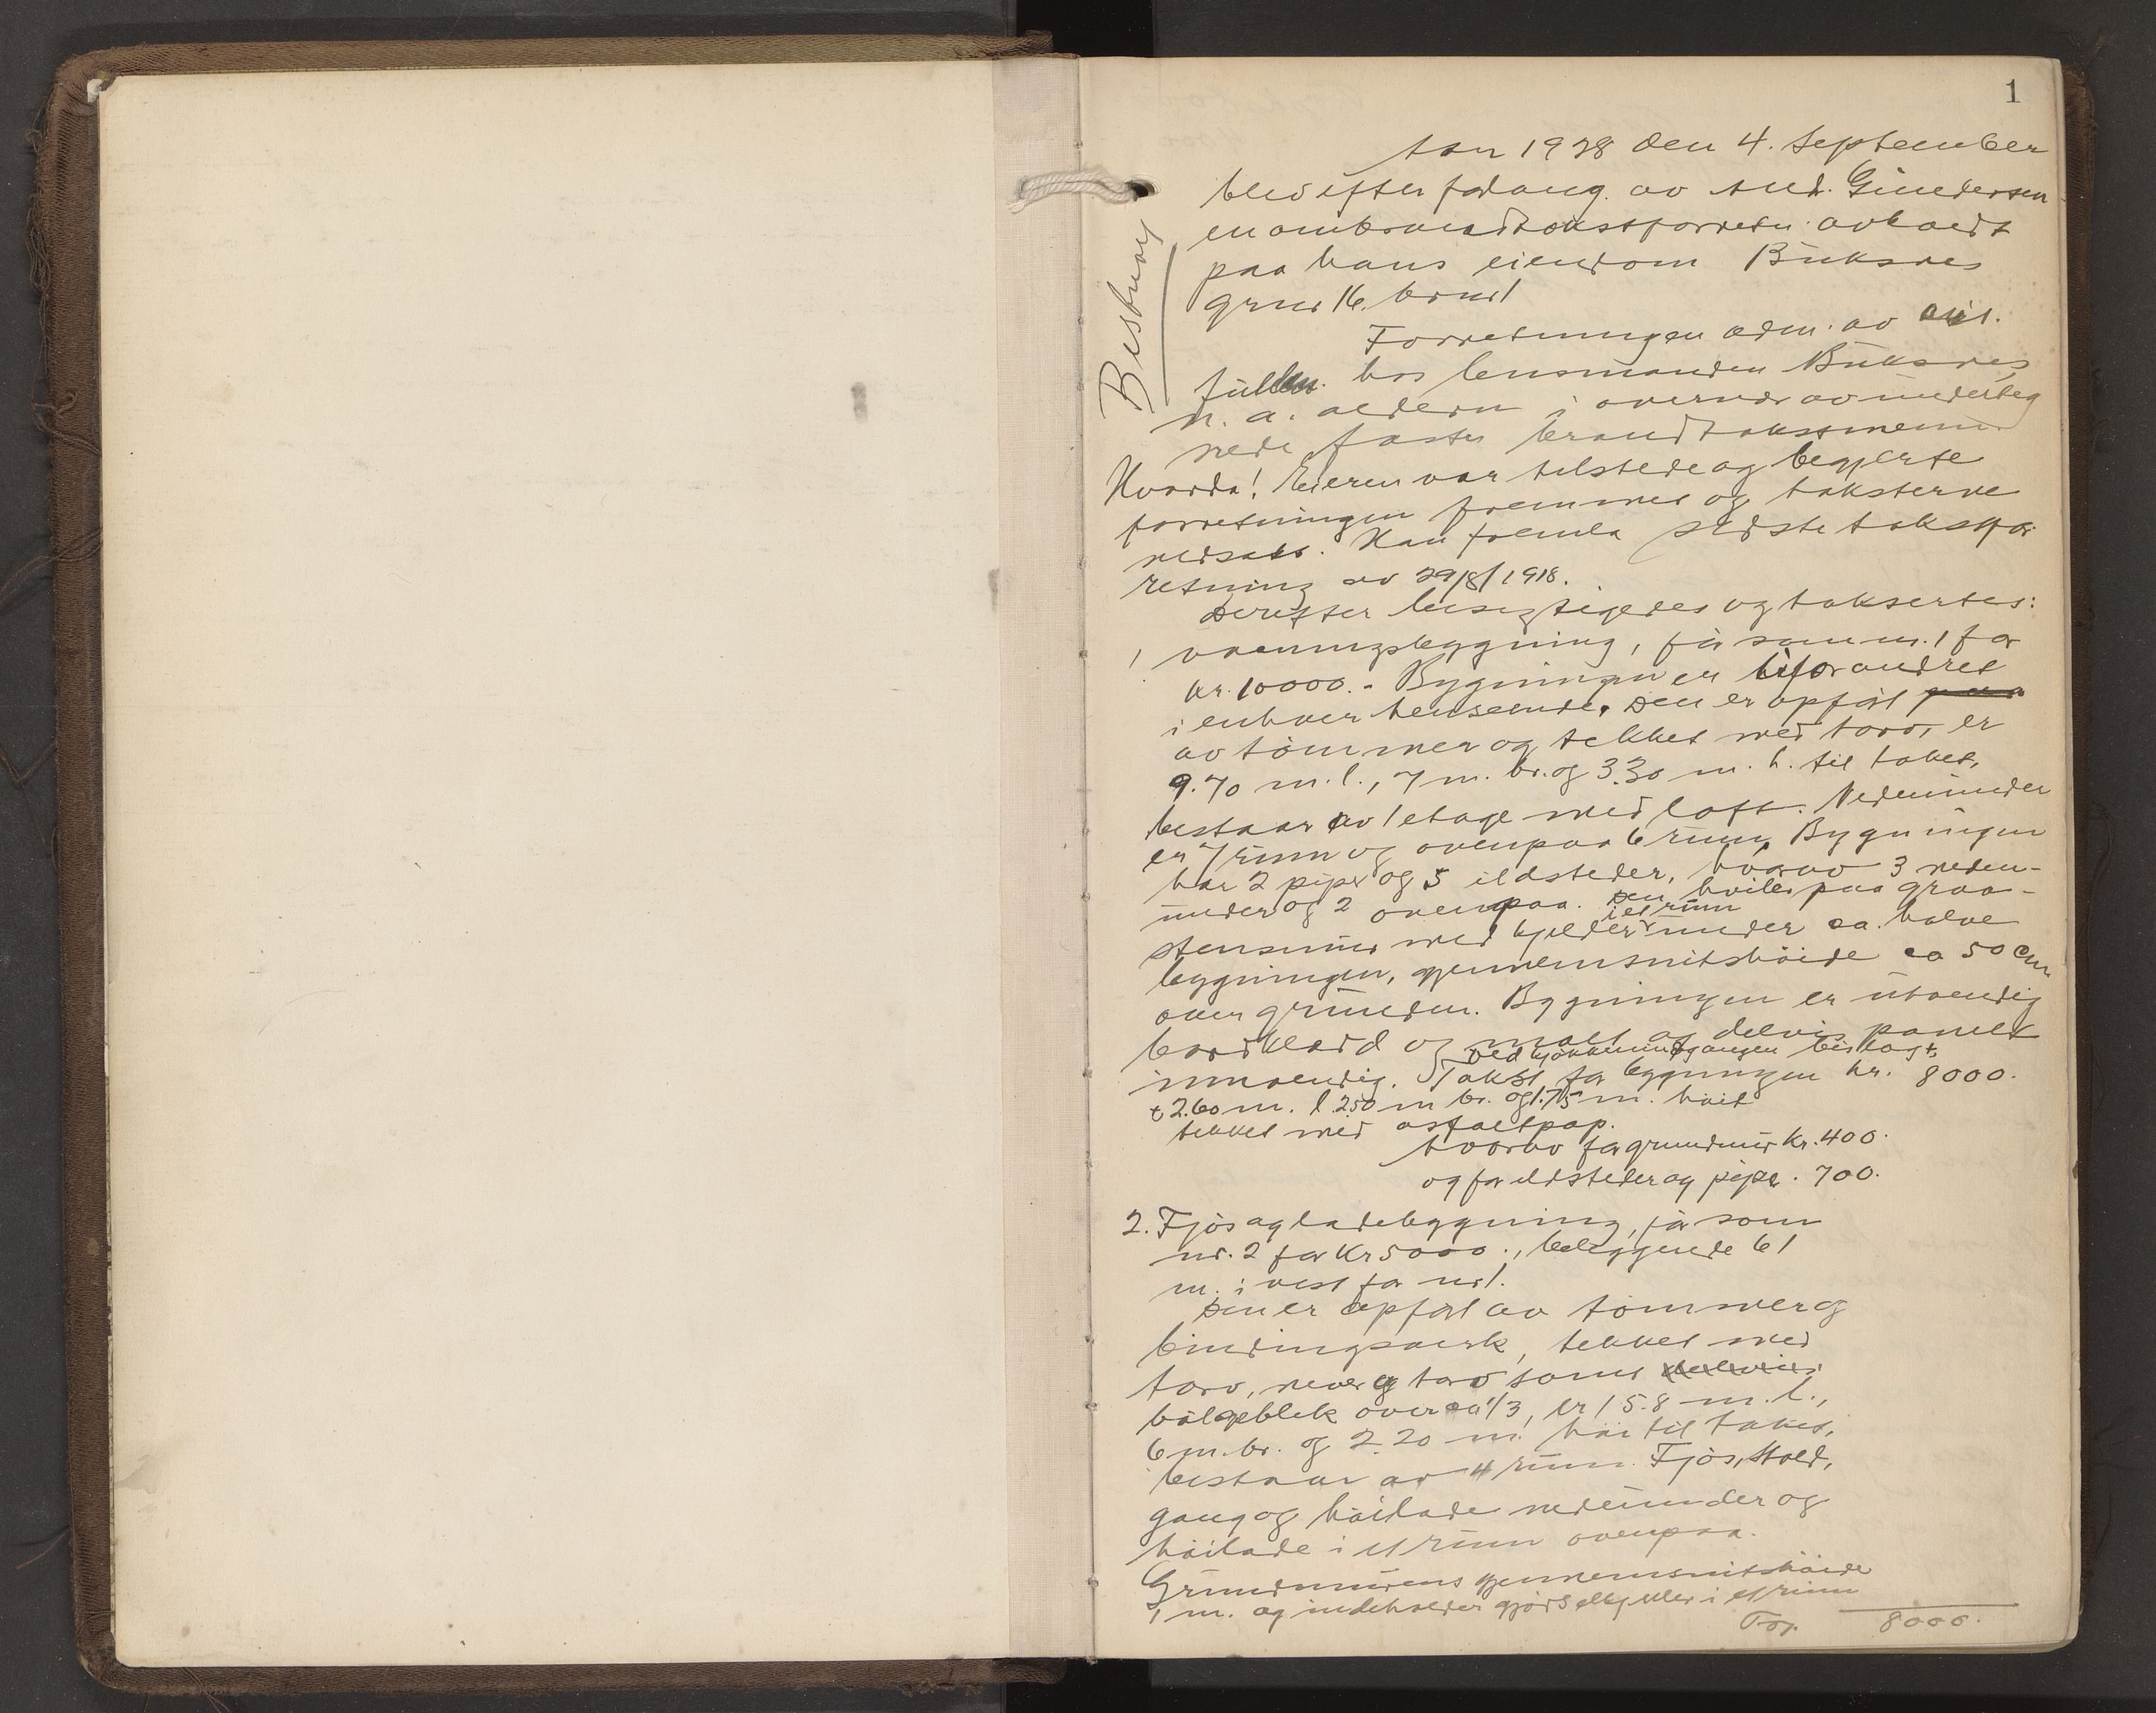 1
Aar 1928 den 4. September
blev efter forlang. av And. Gundersen
en ombrandtakstforretn. avholdt
paa hans eiendom Buksnes
grnr 16. brnr 1
Bestvary
Forretningen adm. av aut.
fullm. hos lensmanden Buksnes
n. a. i overvær av underteg
nede faste brandtakstmenn
Hvorda! Eieren var tilstede og begjærte
forretningen fremmet og taksterne
nedsatt. Han fremla sidste takstfor
retning av 29/8/1918.
Derefter besigtigedes og taksertes:
1 vaaningsbygning, før som nr. 1 for
kr. 10000.- Bygningen er uforandret
i enhver henseende. Den er opført
av tömmer og tekket med torv, er
9.70 m. l., 7 m. br. og 3.30 m. h. til taket,
bestaar av 1 etage med loft. Nedenunder
er 7 rum og ovenpaa 6 rum. Bygningen
har 2 piper og 5 ildsteder, hvorav 3 neden-
under og 2 ovenpaa. Den hviler paa graa-
stensmur med kjelder i et rum under ca. halve
bygningen, gjennemsnitshöide ca 50 cm
over grunden. Bygningen er utvendig
bordklædd og malt og delvis panelt
innvendig. Ved kjøkkenindgangen bislag t,
Takst for bygningen kr. 8000.
t 2.60 m. l. 2.50 m br. og 1.75 m. høit
tekket med asfaltpap.
hvorav for grundmur kr. 400.
og for ildsteder og piper . 700.
2. Fjös og ladebygning, før som
nr. 2 for kr 5000., beliggende 61
m. i vest for nr 1.
Den er opført av tömmer og
bindingsverk, tekket med
torv, never og torv samt
bölgeblik over ca 1/3, er 15.8 m. l.,
6 m. br. og 2.20 m. høi til taket,
bestaar av 4 rum. Fjös, stald,
gang og höilade nedenunder og
höilade i et rum ovenpaa.
Grundmurens gjennemsnitshöide
1 m. og indeholder gjødselkjeller i et rum
Trp. 8000.